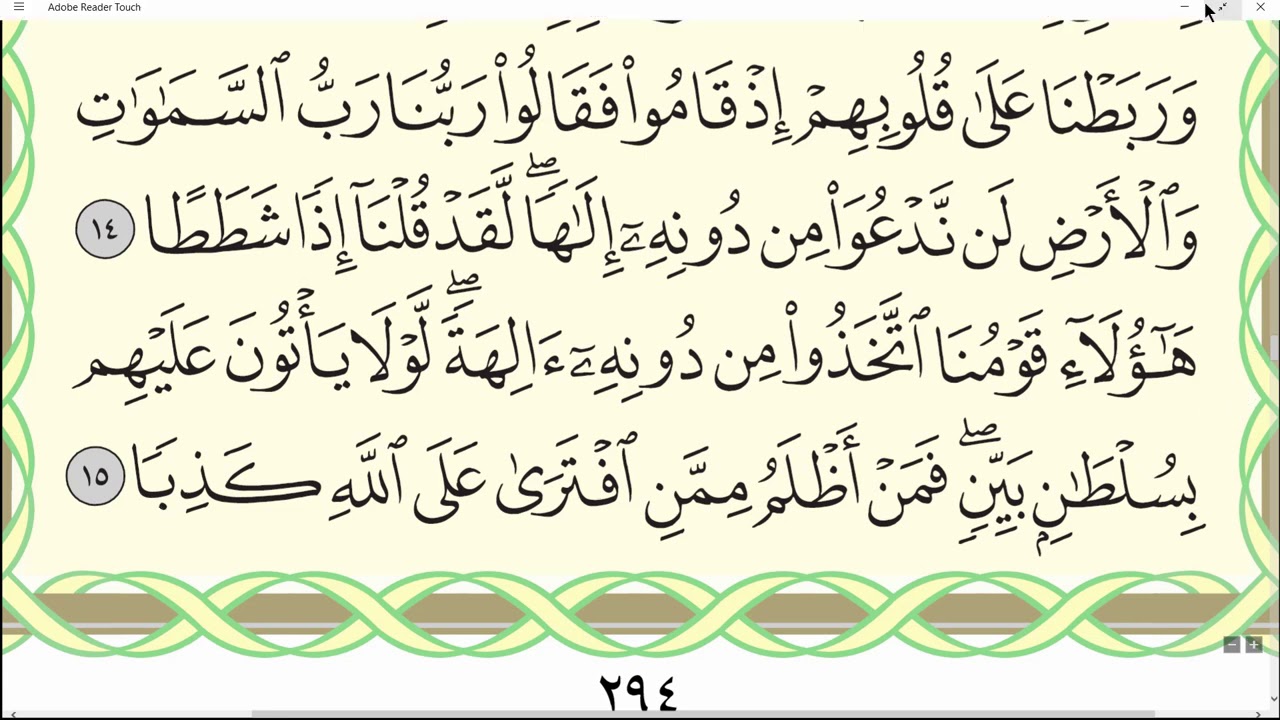 Adobe Reader Touch
وَرَبَطْنَا عَلَىٰ قُلُوبِهِمْ إِذْ قَامُوا۟ فَقَالُوا۟ رَبُّنَا رَبُّ ٱلسَّمَٰوَٰتِ
وَٱلْأَرْضِ لَن نَّدْعُوَا۟ مِن دُونِهِۦٓ إِلَٰهًا ۖ لَّقَدْ قُلْنَآ إِذًا شَطَطًا ١٤
هَٰٓؤُلَآءِ قَوْمُنَا ٱتَّخَذُوا۟ مِن دُونِهِۦٓ ءَالِهَةً ۖ لَّوْلَا يَأْتُونَ عَلَيْهِم
بِسُلْطَٰنٍۭ بَيِّنٍ ۖ فَمَنْ أَظْلَمُ مِمَّنِ ٱفْتَرَىٰ عَلَى ٱللَّهِ كَذِبًا ١٥
٢٩٤